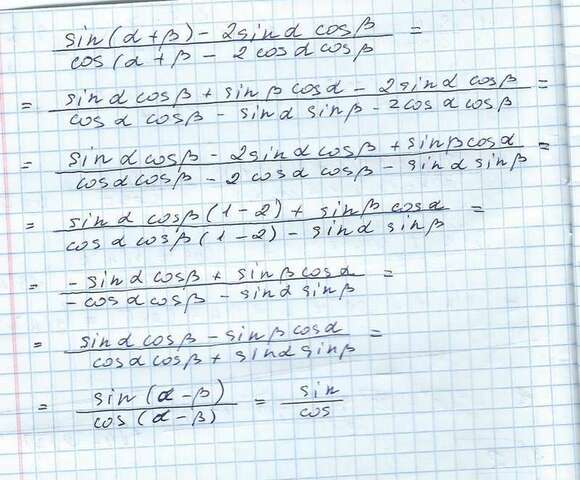 sin(α+β) - 2sinα cosβ / cos(α+β - 2cosα cosβ =
= sinα cosβ + sinβ cosα - 2sinα cosβ / cosα cosβ - sinα sinβ - 2cosα cosβ =
= sinα cosβ - 2sinα cosβ + sinβ cosα / cosα cosβ - 2cosα cosβ - sinα sinβ =
= sinα cosβ (1-2) + sinβ cosα / cosα cosβ (1-2) - sinα sinβ =
= -sinα cosβ + sinβ cosα / -cosα cosβ - sinα sinβ =
= sinα cosβ - sinβ cosα / cosα cosβ + sinα sinβ =
= sin(α-β) / cos(α-β) = sin / cos